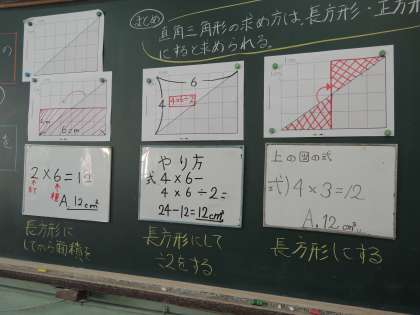 まとめ
直角三角形の求め方は、長方形・正方形
にすると求められる。
の
を
6cm
2×6=12
たて
横
A.12cm²
長方形に
してから面積を
6
4
4×6÷2
やり方
式 4×6-
4×6÷2=
24-12=12cm²
長方形にして
÷2をする
上の図の式
式) 4×3=12
A.12cm²
長方形にする